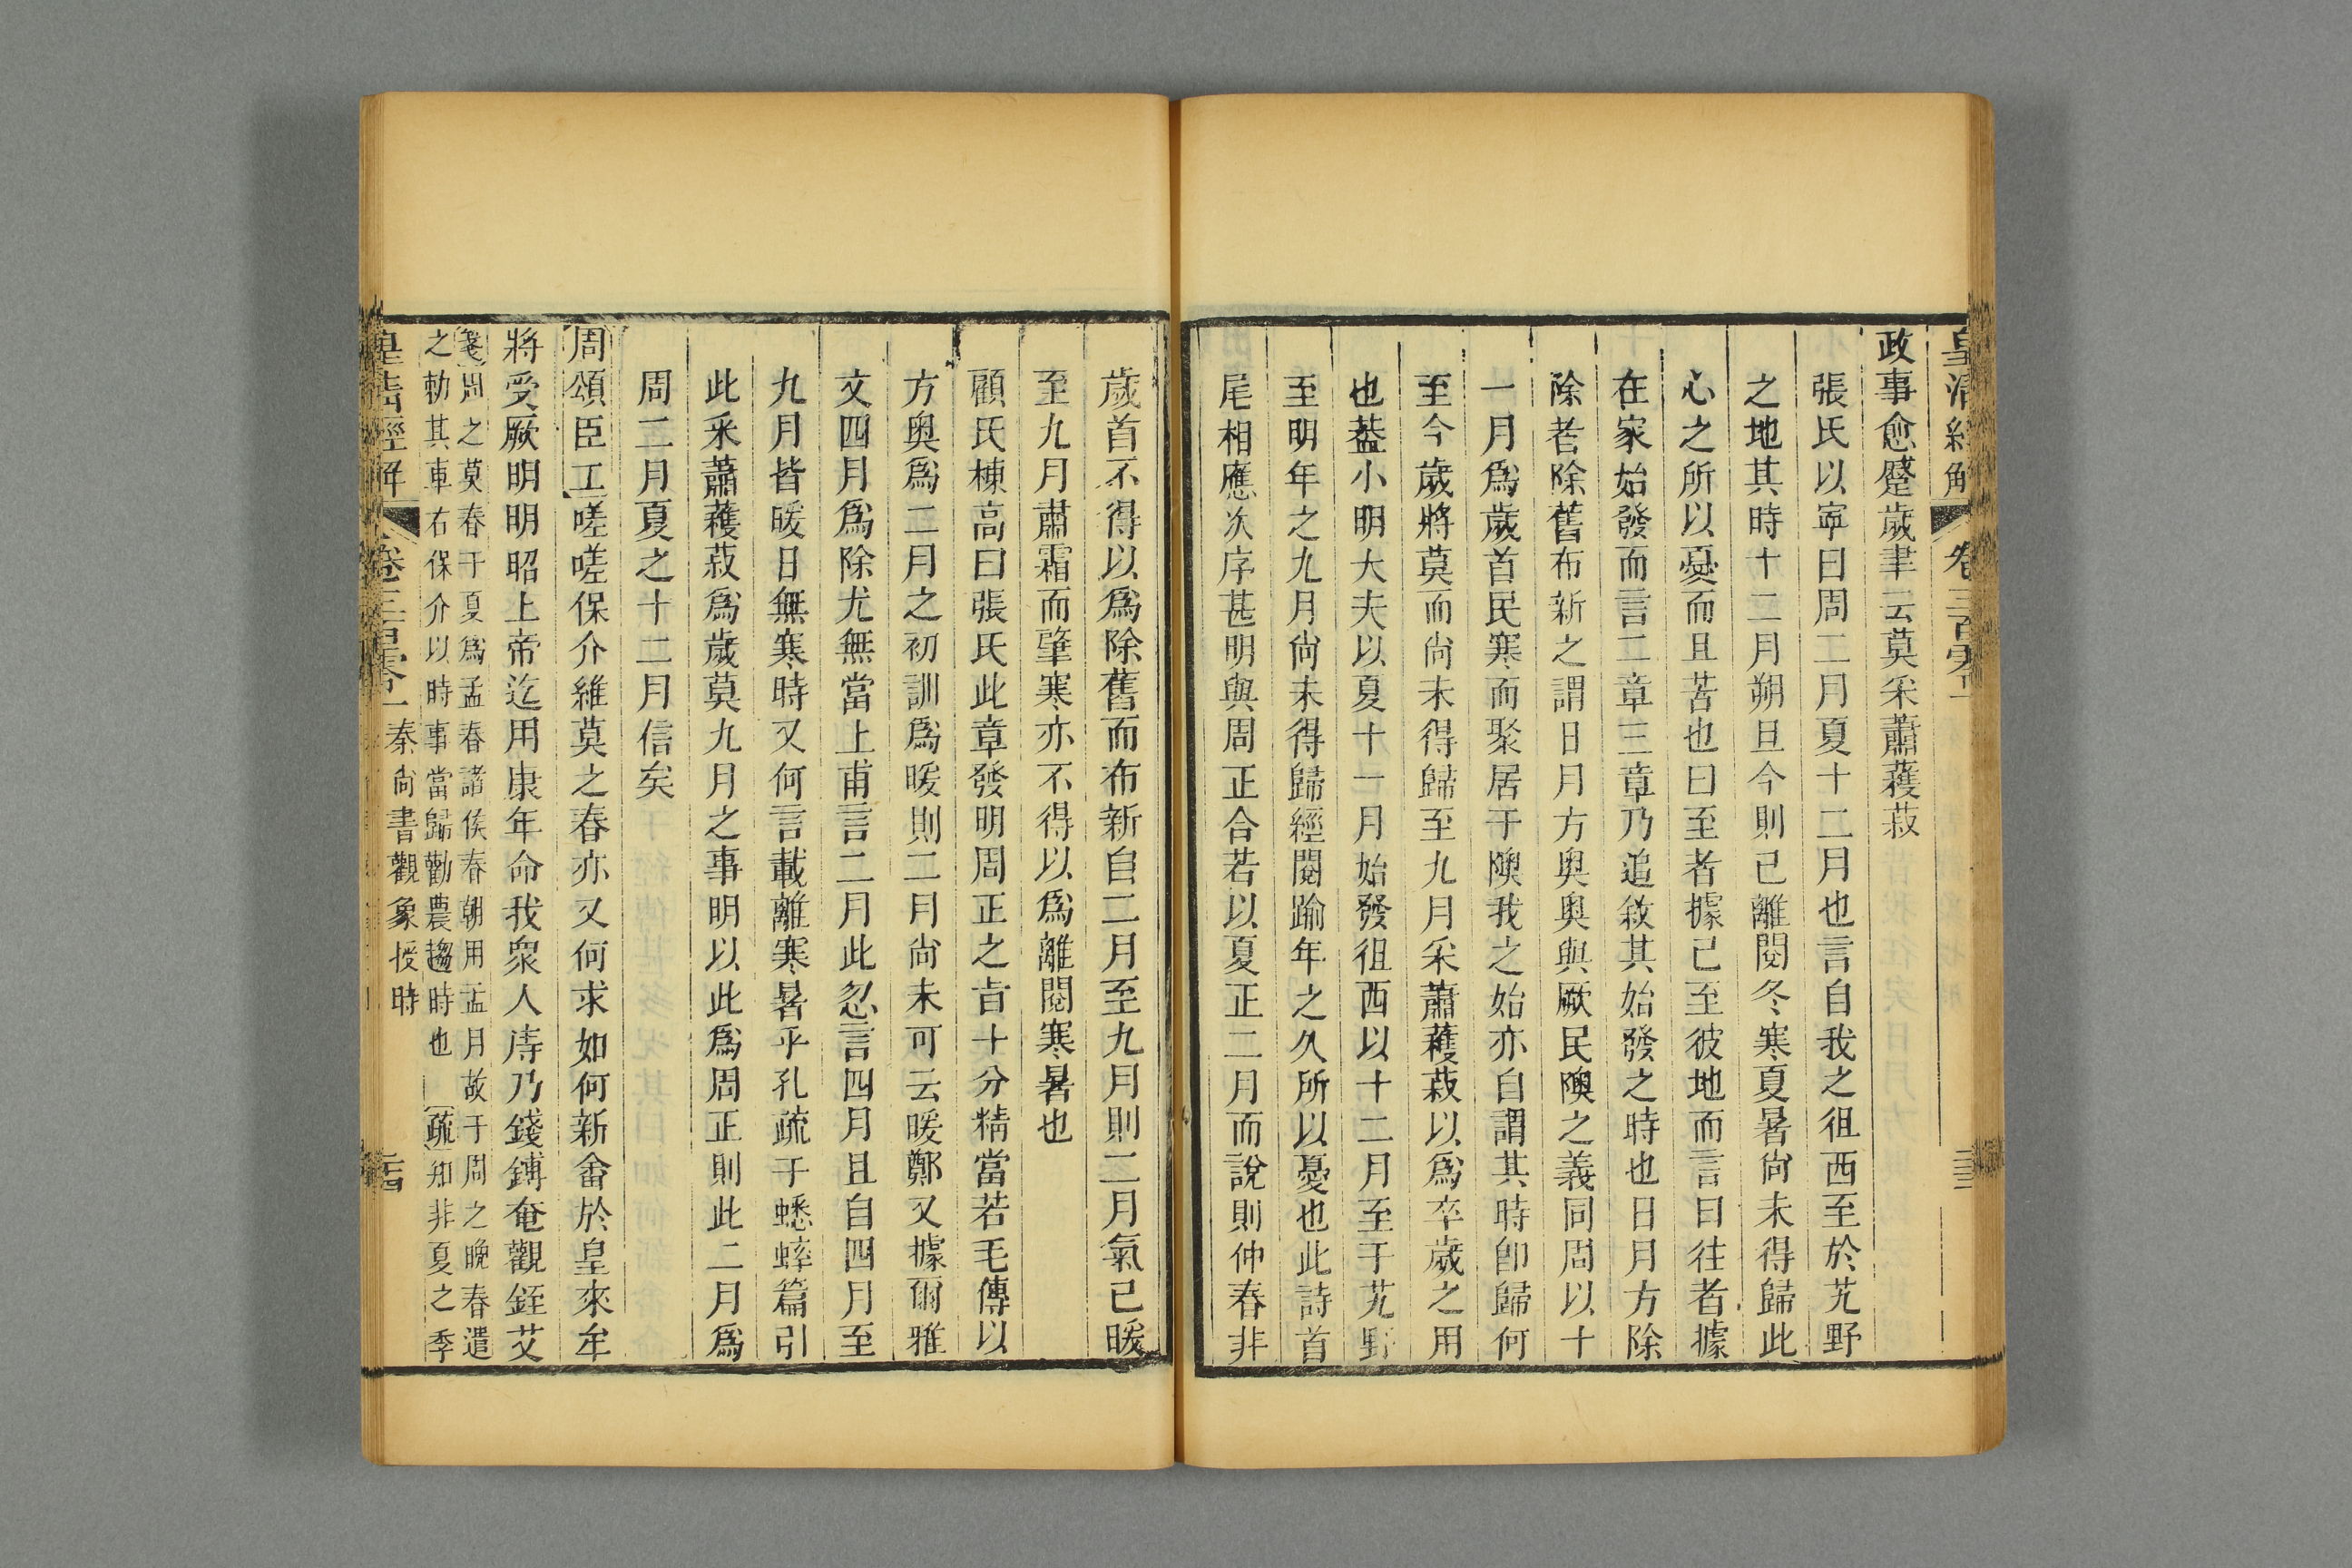 皇清經解 卷三百零一
政事愈蹙歲聿云莫采蕭穫菽
張氏以寧曰周二月夏十二月也言自我之徂西至於艽野
之地其時十二月朔旦今則已離閱冬寒夏暑尙未得歸此
心之所以憂而且苦也曰至者據己至彼地而言曰往者據
在家始發而言二章三章乃追敘其始發之時也日月方除
除者除舊布新之謂日月方奧奧與厥民隩之義同周以十
一月爲歲首民寒而聚居于隩我之始亦自謂其時卽歸何
至今歲將莫而尙未得歸至九月采蕭穫菽以爲卒歲之用
也葢小明大夫以夏十一月始發徂西以十二月至于艽野
至明年之九月尙未得歸經閱踰年之久所以憂也此詩首
尾相應次序甚明與周正合若以夏正二月而說則仲春非
歲首不得以爲除舊而布新自二月至九月則二月氣已暖
至九月肅霜而肇寒亦不得以爲離閱寒暑也
顧氏棟高曰張氏此章發明周正之旨十分精當若毛傳以
方奧爲二月之初訓爲暖則二月尙未可云暖鄭又據爾雅
文四月爲除尤無當上甫言二月此忽言四月且自四月至
九月皆暖日無寒時又何言載離寒暑乎孔疏于蟋蟀篇引
此釆蕭穫菽爲歲莫九月之事明以此爲周正則此二月爲
周二月夏之十二月信矣
周頌臣工嗟嗟保介維莫之春亦又何求如何新畬於皇來牟
將受厥明明昭上帝迄用康年命我衆人庤乃錢鎛奄觀銍艾
箋周之莫春于夏爲孟春諸侯春朝用孟月故于周之晚春遣
之勑其車右保介以時事當歸勸農趨時也 疏知非夏之季
皇清經解 卷三百零一 秦尙書觀象授時 二四